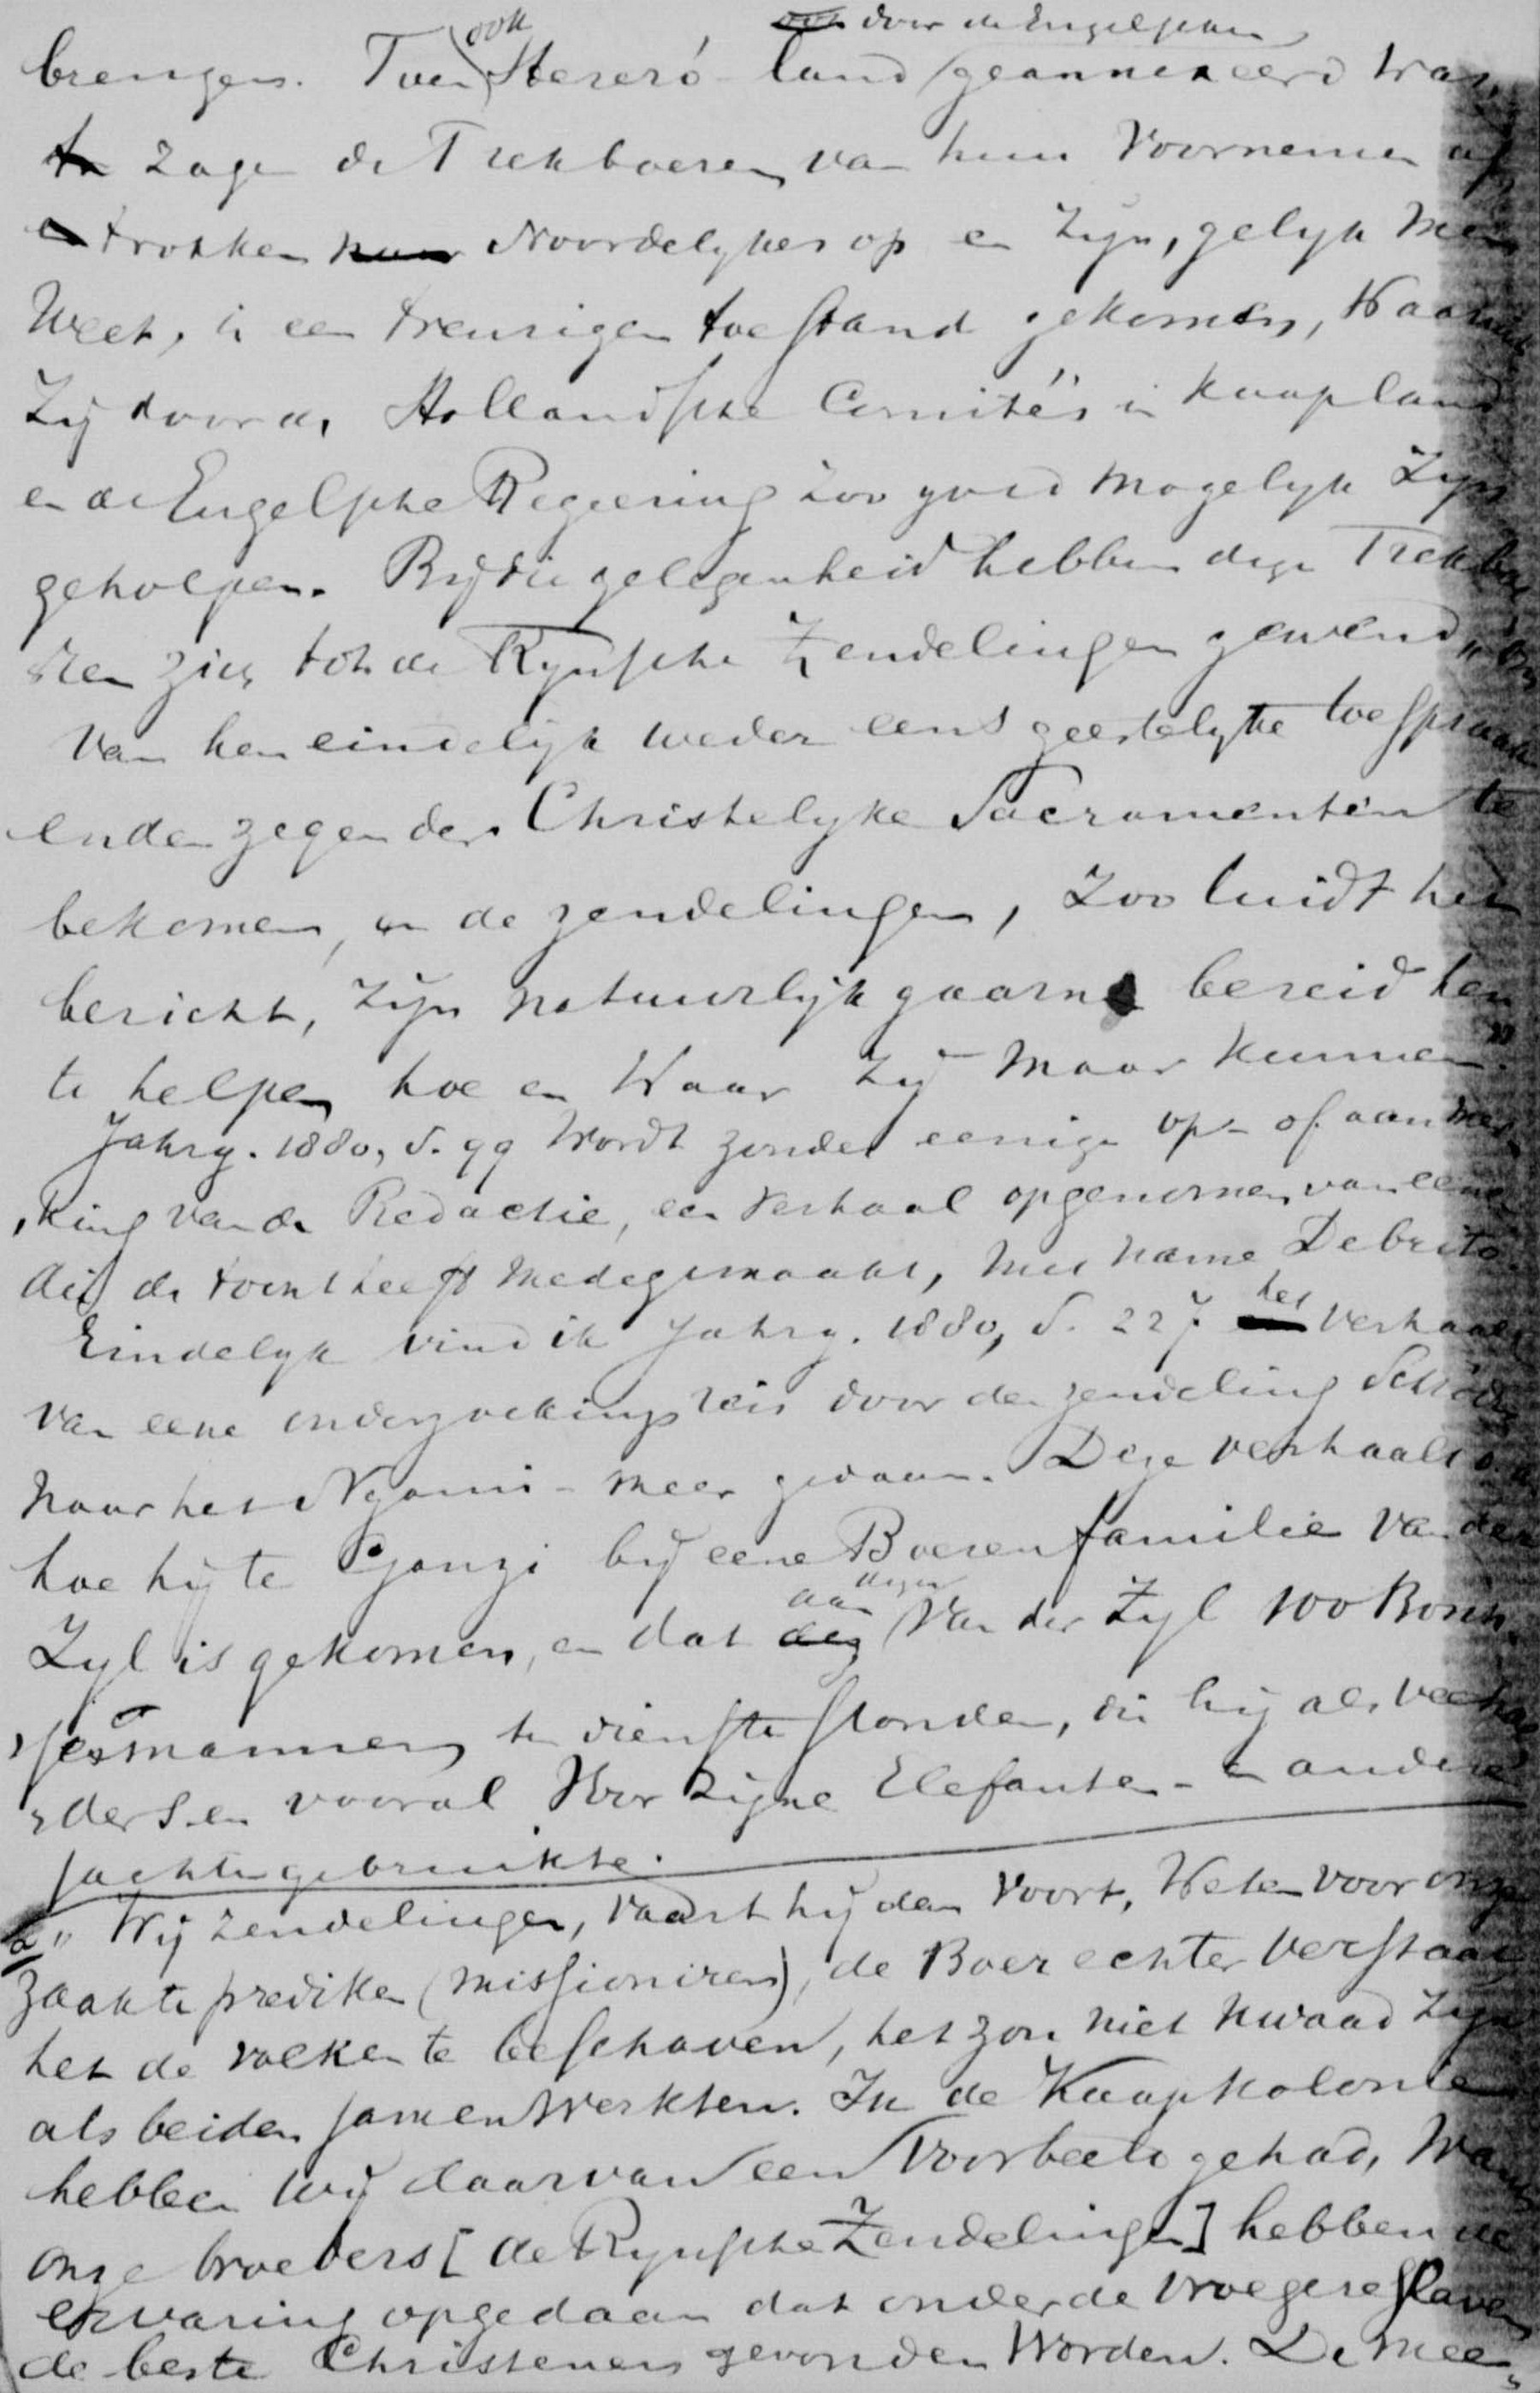 ook door de Engelschen
brengen. Toen Hereró-land geannexeerd was,
zagen de Trekboeren van hun voornemen af,
trokken Noordelyker op en zyn, gelyk men
weet, in een treurigen toestand gekomen, waaruit
zij door de Hollandsche Comité's in Kaapland
en de Engelsche Regeering zoo goed mogelyk zyn
geholpen. Bij die gelegenheid hebben deze Trekboe-
ren zich tot de Rynsche Zendelingen gewend, "om
van hen eindelijk weder eens geestelyke toespraak
en den zegen der Christelyke Sacramenten te
bekomen, en de zendelingen, zoo luidt het
bericht, zijn natuurlijk gaarne bereid hen
te helpen hoe en waar zij maar kunnen."
Jahrg. 1880, S. 99 wordt zonder eenige op- of aanmer-
king van de Redactie, een verhaal opgenomen van eenen
die de tocht heeft medegemaakt, met name Debrito.
Eindelyk vind ik Jahrg. 1880, S. 227 het verhaal
van eene onderzoekingsreis door den zendeling Schröder
naar het Ngami-meer gedaan. Deze verhaalt o.a.
hoe hij te Ganzi bij eene Boerenfamilie Van der
Zyl is gekomen, en dat aan dezen Van der Zyl 100 Bosch-
jesmannen ten dienste stonden, die hij als veehoe-
ders en vooral voor zijne Elefanten- en andere
jachten gebruikte.
"Wij zendelingen, vaart hij dan voort, weten voor onze
zaak te prediken (missioniren), de Boer echter verstaat
het de volken te beschaven, het zou niet kwaad zyn
als beiden samenwerkten. In de Kaapkolonie
hebben wij daarvan een voorbeeld gehad, want
onze broeders [de Rynsche Zendelingen] hebben de
ervaring opgedaan dat onder de vroegere slaven
de beste Christenen gevonden worden. De mee-